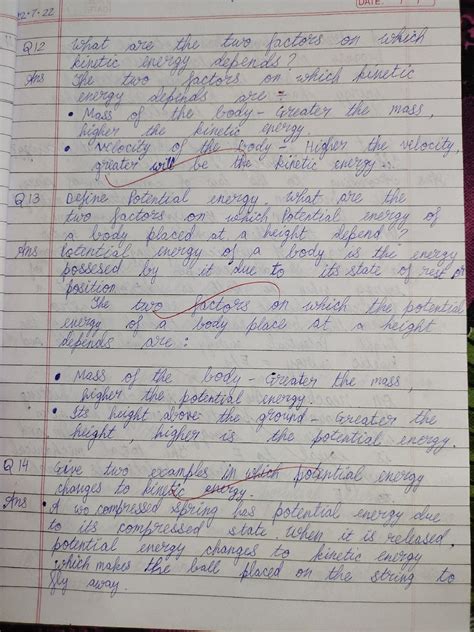 12.7.22
DATE: / /
Q12 What are the two factors on which
kinetic energy depends?
Ans The two factors on which kinetic
energy depends are -
• Mass of the body - Greater the mass,
higher the kinetic energy.
• Velocity of the body - Higher the velocity,
greater will be the kinetic energy.
Q13 Define Potential energy. What are the
two factors on which Potential energy of
a body placed at a height depend?
Ans Potential energy of a body is the energy
possesed by it due to its state of rest or
position
The two factors on which the potential
energy of a body place at a height
depends are :
• Mass of the body - Greater the mass,
higher the potential energy.
• Its height above the ground - Greater the
height, higher is the potential energy.
Q14 Give two examples in which potential energy
changes to kinetic energy.
Ans • A compressed spring has potential energy due
to its compressed state. When it is released,
potential energy changes to kinetic energy
which makes the ball placed on the string to
fly away.